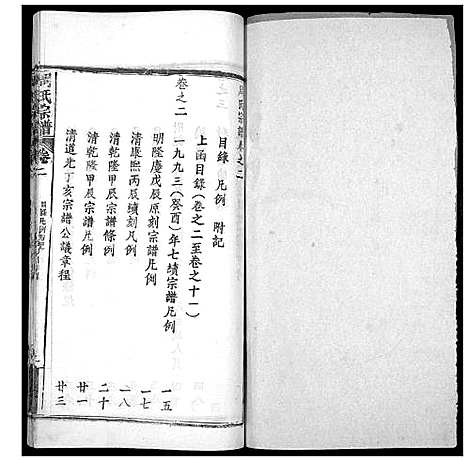 周氏宗譜卷之二
目錄 凡例 附記
上函目錄(卷之二至卷之十一)
卷之二
一九九三(癸酉)年七續宗譜凡例 一五
明隆慶戊辰原刻宗譜凡例 一七
清康熙丙辰續刻凡例 一八
清乾隆甲辰宗譜條例 二十
清乾隆甲辰宗譜凡例 廿一
清道光丁亥宗譜公議章程 廿三
周氏宗譜 卷二